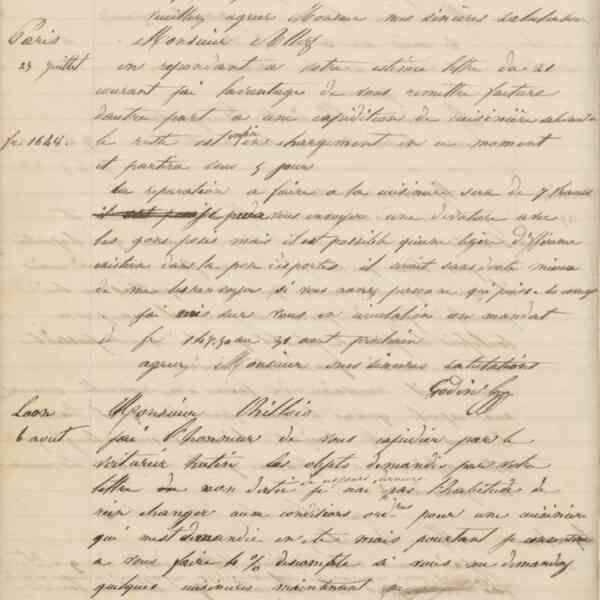 veuillez agréer Monsieur mes sincères salutations
Paris Monsieur
27 juillet en repondant a votre estimée lettre du 21
courant j'ai lavantage de vous remettre facture
dautre part a une expédition de cuisinière
fr 1644. le reste est enfin en chargement en ce moment
et partira sous 5 jours
la reparation a faire a la cuisinière sera de 7 francs
vous envoyer une devature avec
les gons posés mais il est possible quune legere différence
existera dans la pose des portes il serait sans doute mieux
de me les renvoyer si vous navez personne qui puisse les
j'ai mis sur vous en circulation un mandat
de fr 147.50 au 31 aout prochain
agréez Monsieur mes sincères salutations
Godin
Laon Monsieur
6 aout j'ai l'honneur de vous expédier par le
voiturier hutin les objets demandés par votre
lettre non datée je nai pas l'habitude de
rien changer aux conditions pour une cuisinière
qui mest demandée en été mais pourtant je
a vous faire 4 % descompte si vous me demandez
quelques cuisinières maintenant